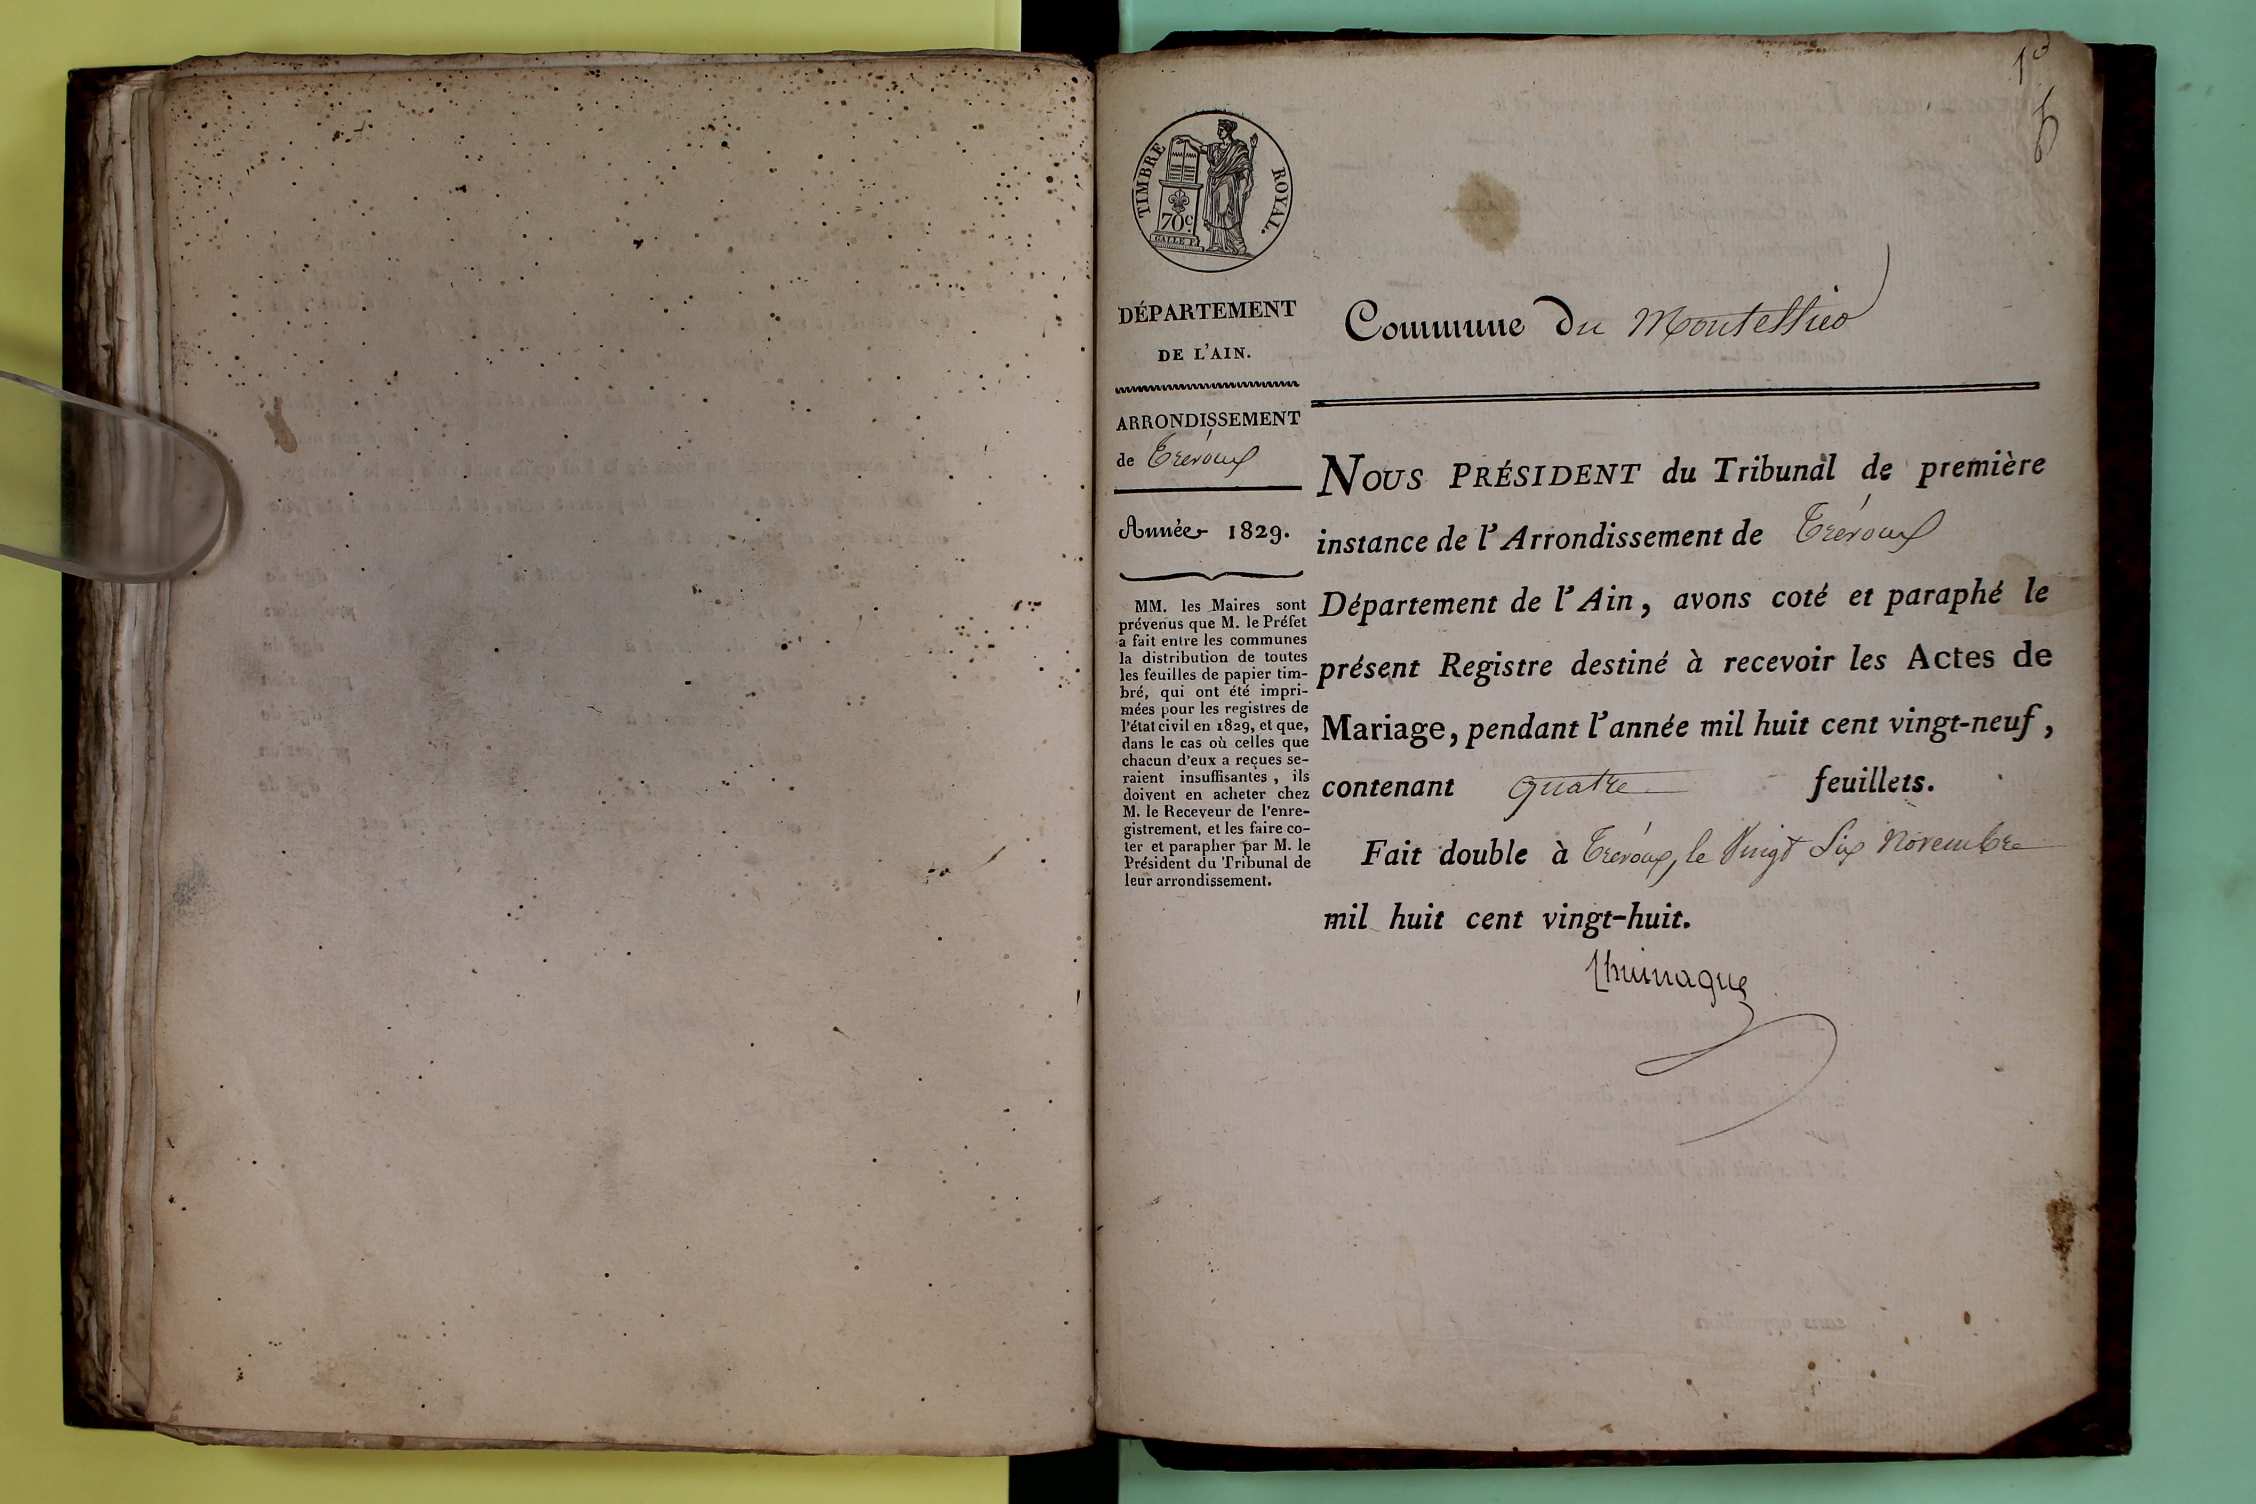 TIMBRE ROYAL.
70c.
GALLE F.
DÉPARTEMENT
DE L'AIN.
ARRONDISSEMENT
de Trévoux
Année 1829.
MM. les Maires sont
prévenus que M. le Préfet
a fait entre les communes
la distribution de toutes
les feuilles de papier tim-
bré, qui ont été impri-
mées pour les registres de
l'état civil en 1829, et que,
dans le cas où celles que
chacun d'eux a reçues se-
raient insuffisantes, ils
doivent en acheter chez
M. le Receveur de l'enre-
gistrement, et les faire co-
ter et parapher par M. le
Président du Tribunal de
leur arrondissement.
Commune du Montellier
NOUS PRÉSIDENT du Tribunal de première
instance de l'Arrondissement de Trévoux
Département de l'Ain, avons coté et paraphé le
présent Registre destiné à recevoir les Actes de
Mariage, pendant l'année mil huit cent vingt-neuf,
contenant quatre feuillets.
Fait double à Trévoux, le Vingt Six Novembre
mil huit cent vingt-huit.